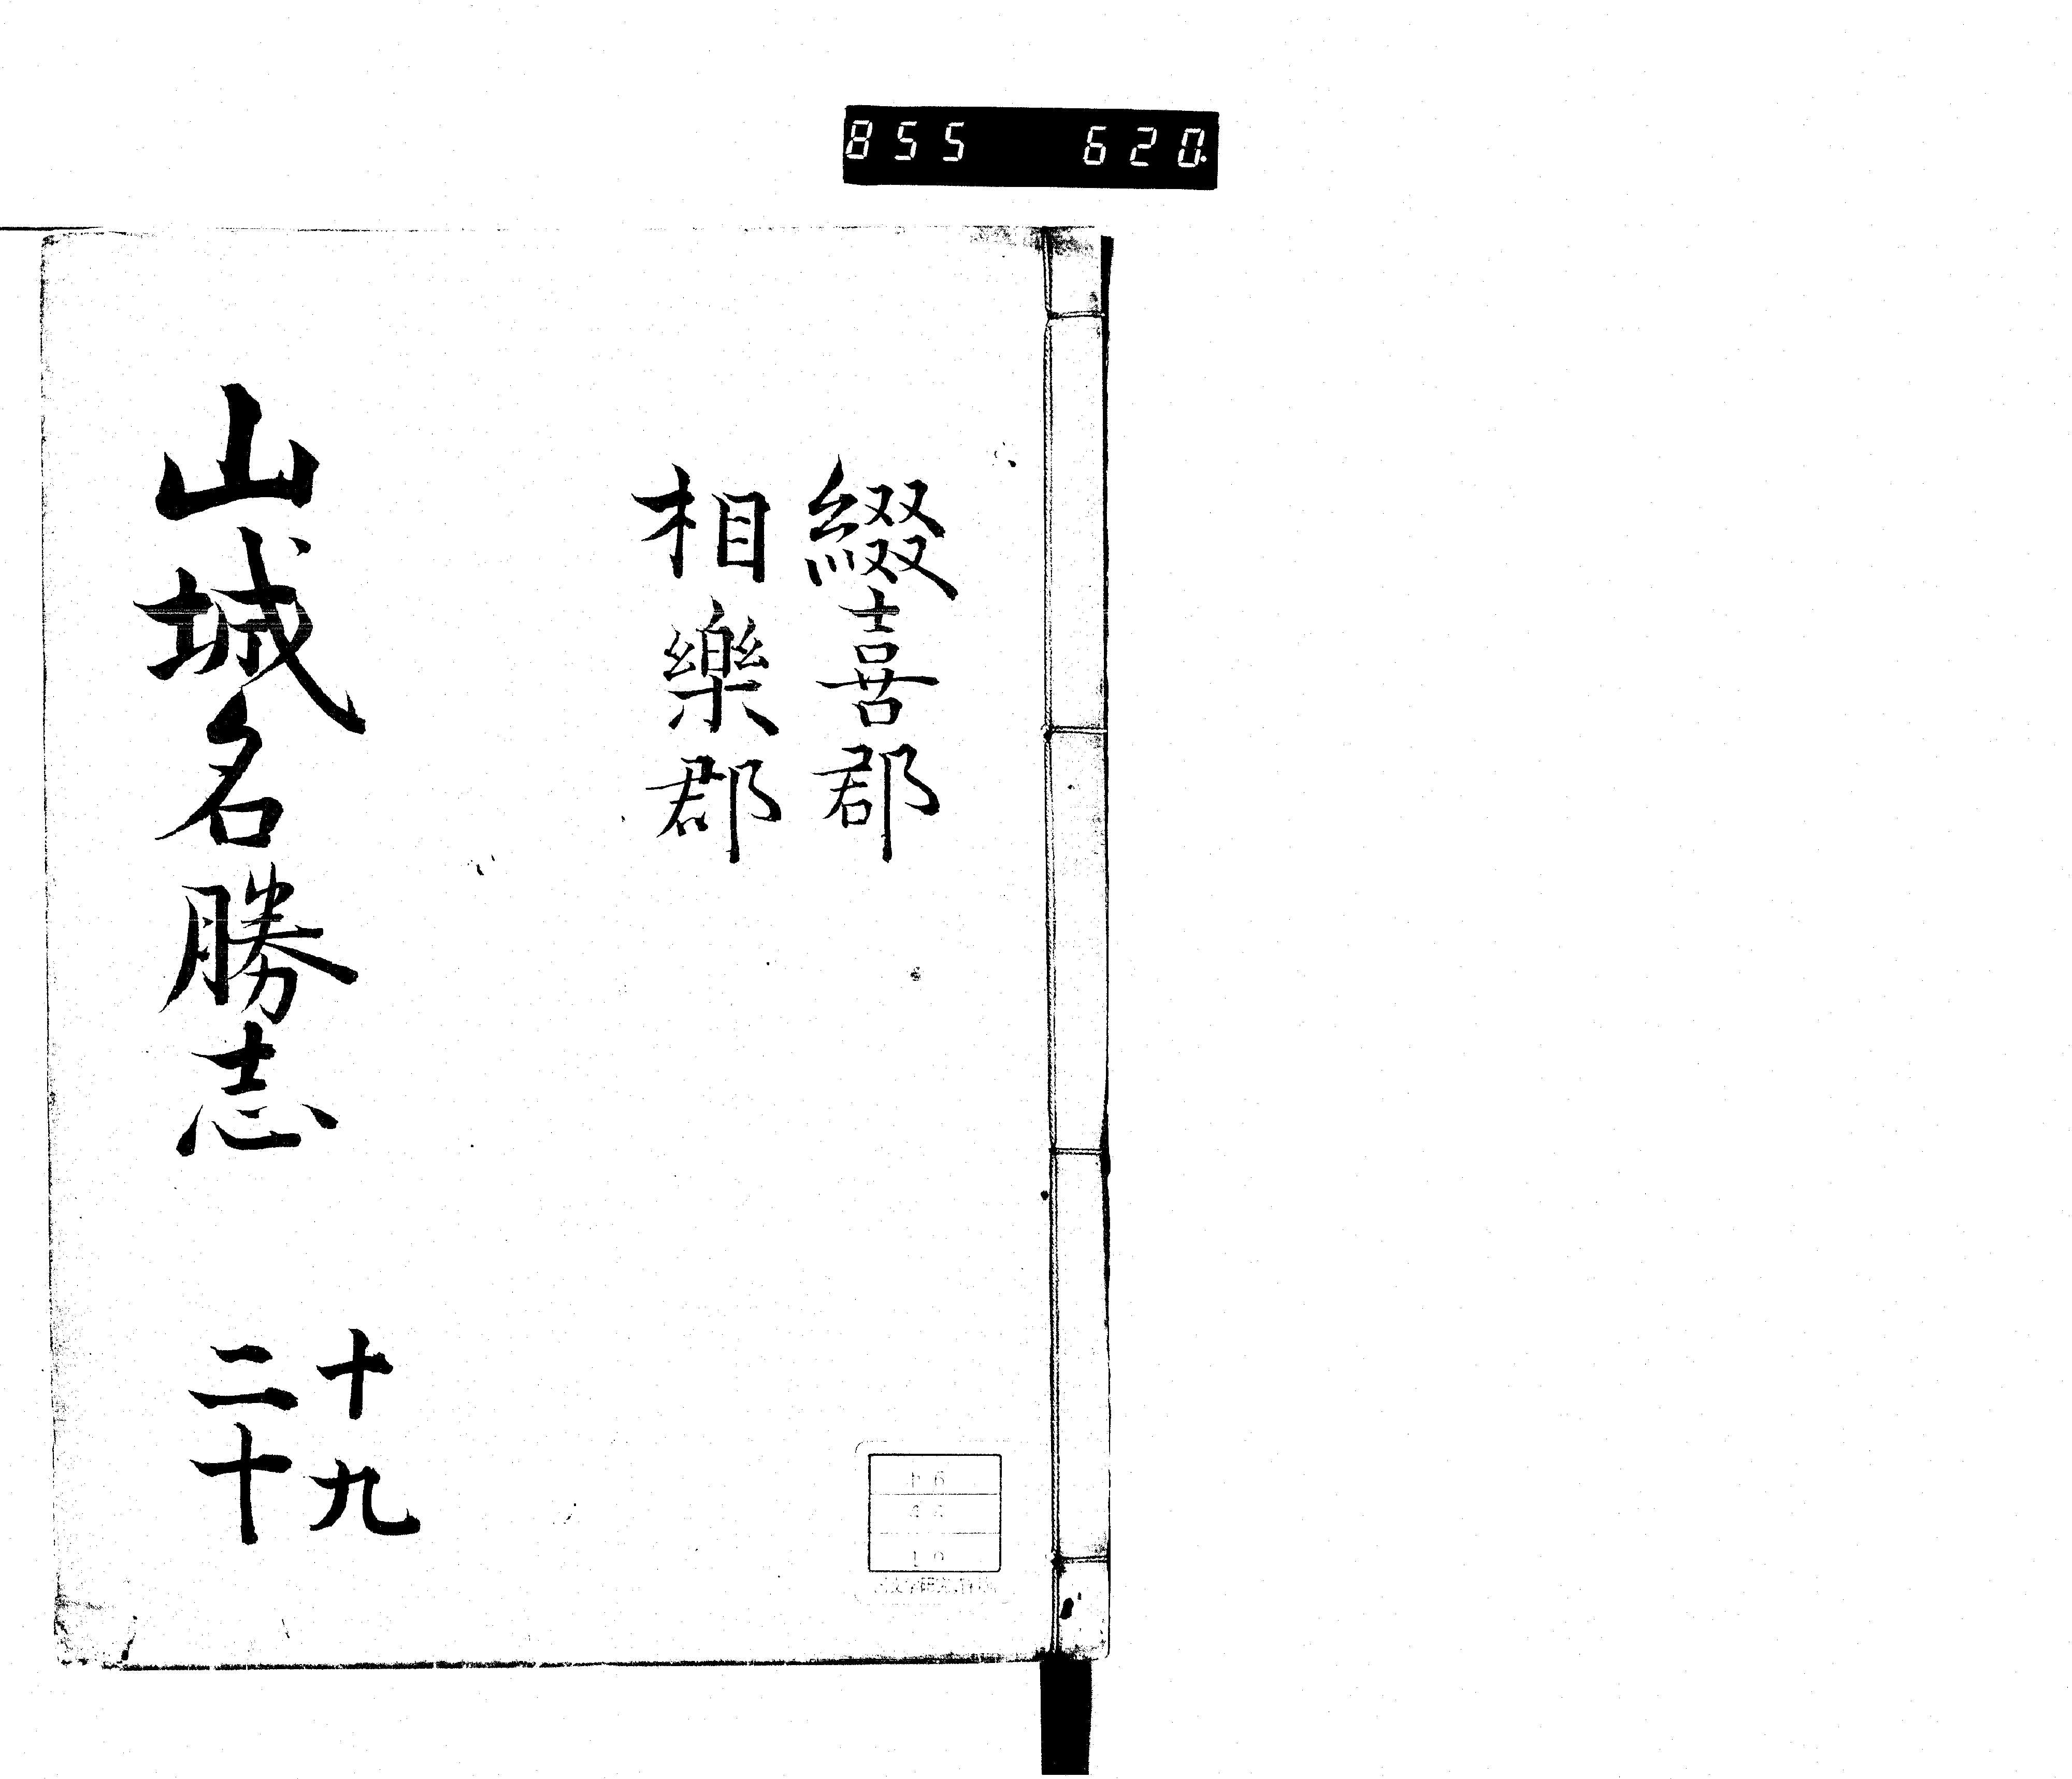 855 620.
綴喜郡
相樂郡
山城名勝志
十九
二十